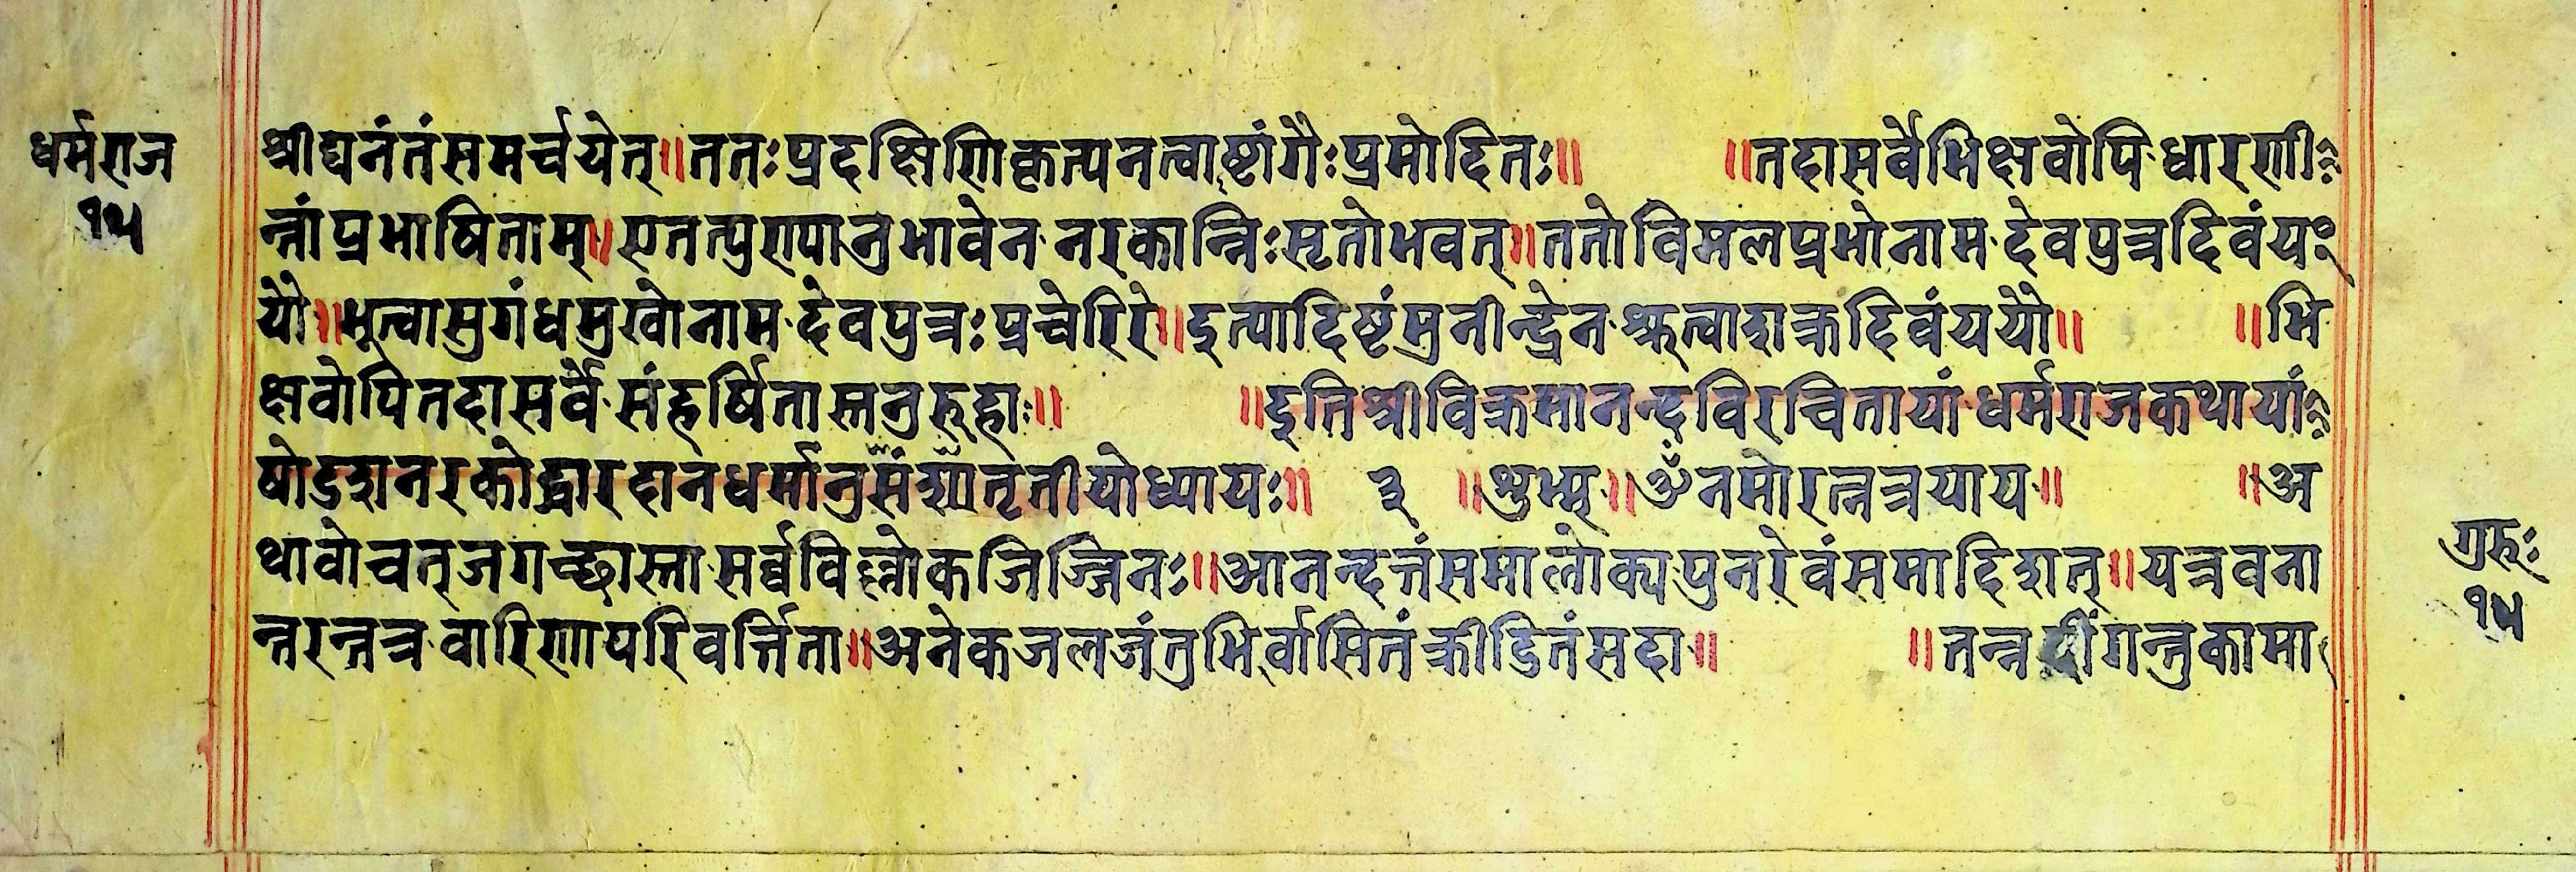 धर्मराज
१५
श्रीघनंतंसमर्चयेत्॥ततःप्रदक्षिणिकृत्यनत्वाष्टांगैःप्रमोदितः॥ ॥तदासर्वेभिक्षवोपिधारणी
न्नांप्रभाषिताम्॥एतत्पुण्यानुभावेननरकान्निःसृतोभवत्॥ततोविमलप्रभोनामदेवपुत्रदिवंय
यौ॥भूत्वासुगंधमुखोनामदेवपुत्रःप्रचेरिरे॥इत्यादिष्टंमुनीन्द्रेनश्रुत्वाशक्रदिवंययौ॥ ॥भि
क्षवोपितदासर्वेसंहर्षितास्तनुरुहाः॥ ॥इतिश्रीविक्रमानन्दविरचितायांधर्मराजकथायां
षोडशनरकोद्धारदानधर्मानुसंतृतीयोध्यायः॥ ३ ॥शुभम्॥ॐनमोरत्नत्रयाय॥ ॥अ
थावोचत्जगच्छास्तासर्व्वविल्लोकजिज्जिनः॥आनन्दन्तंसमालोक्यपुनरेवंसमादिशत्॥यत्रवना
न्तरन्तत्रवारिणापरिवर्त्तिता॥अनेकजलजंतुभिर्वासितंक्रीडितंसदा॥ ॥तत्रगन्तुकामा
गुरुः
१५